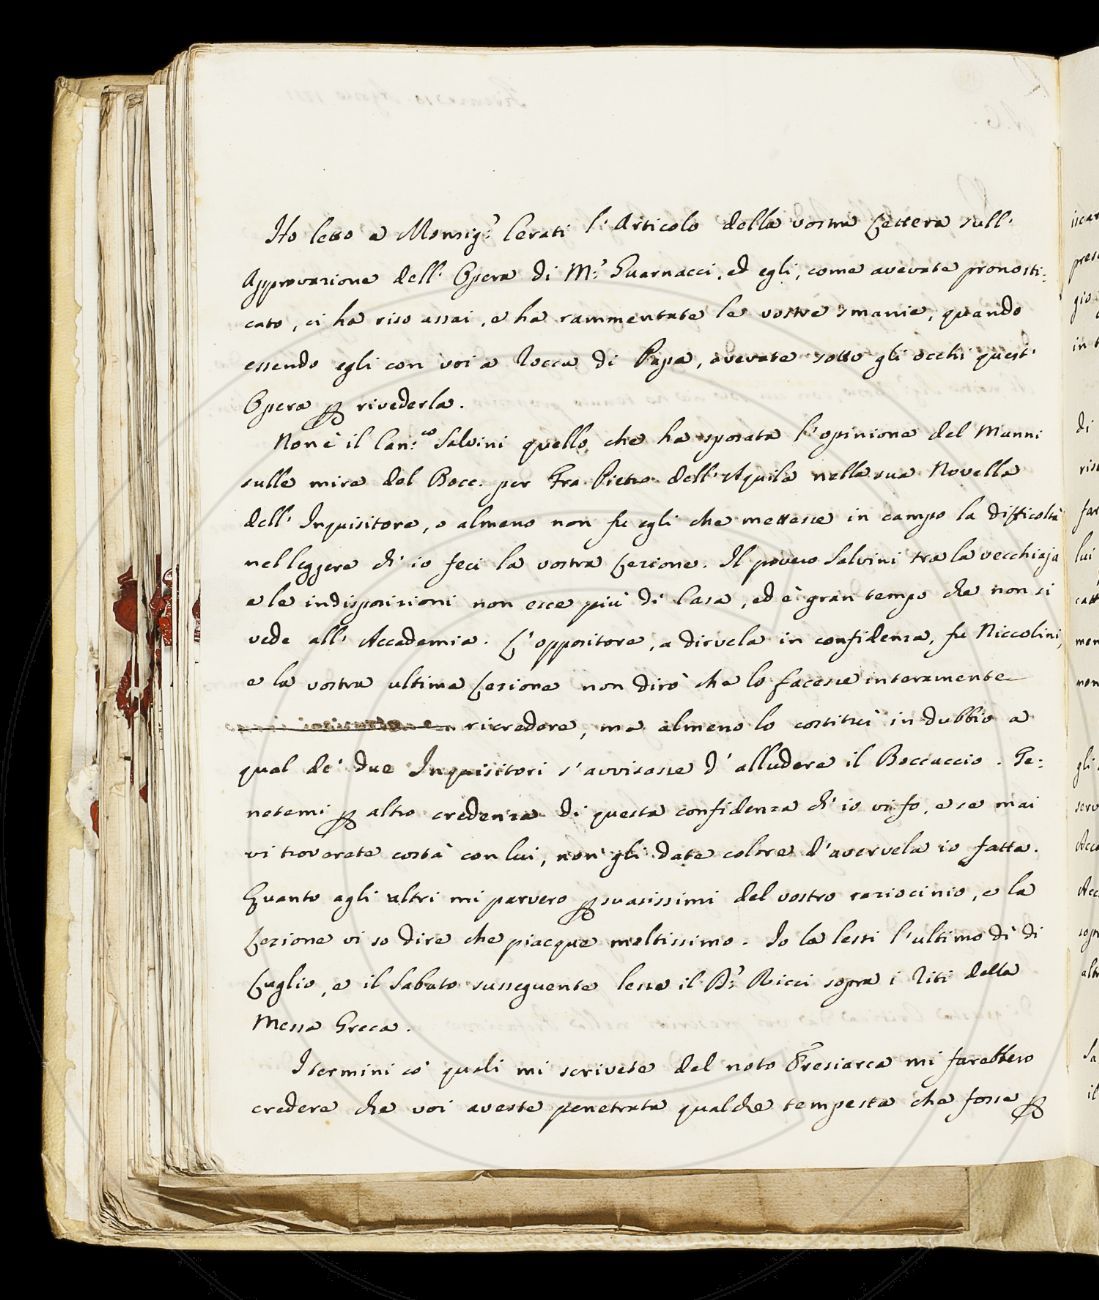 Ho letto a Monsig.r Cerati l'Articolo della vostra Lettera sull'
Approvazione dell'Opera di M.r Guarnacci, ed egli, come avevate pronosti-
cato, ci ha riso assai, e ha rammentate le vostre smanie, quando
essendo egli con voi a Rocca di Papa, avevate sotto gli occhi quest'
Opera ꝑ rivederla.
Non è il Can.co Salvini quello che ha sposata l'opinione del Manni
sulle mire del Bocc. per Fra Pietro dell'Aquila nella sua Novella
dell'Inquisitore, o almeno non fu egli che mettesse in campo la difficoltà
nel leggere ch'io feci la vostra Lezione. Il povero Salvini tra la vecchiaja
e le indisposizioni non esce più di Casa, ed è gran tempo che non si
vede all'Accademia. L'oppositore, a dirvela in confidenza, fu Niccolini,
e la vostra ultima Lezione non dirò che lo facesse interamente
ricredere, ma almeno lo costituì in dubbio a
qual de' due Inquisitori s'avvisasse d'alludere il Boccaccio. Te-
netemi ꝑ altro credenza di questa confidenza ch'io vi fo, e se mai
vi trovarete costà con lui, non gli date colore d'avervela io fatta.
Quanto agli altri mi parvero ꝑsuasissimi del vostro raziocinio, e la
Lezione vi so dire che piacque moltissimo. Io la lessi l'ultimo dì di
Luglio, e il Sabato susseguente lesse il P.r Ricci sopra i Riti della
Messa Greca.
I termini co' quali mi scrivete del noto Eresiarca mi farebbero
credere che voi aveste penetrata qualche tempesta che fosse ꝑ